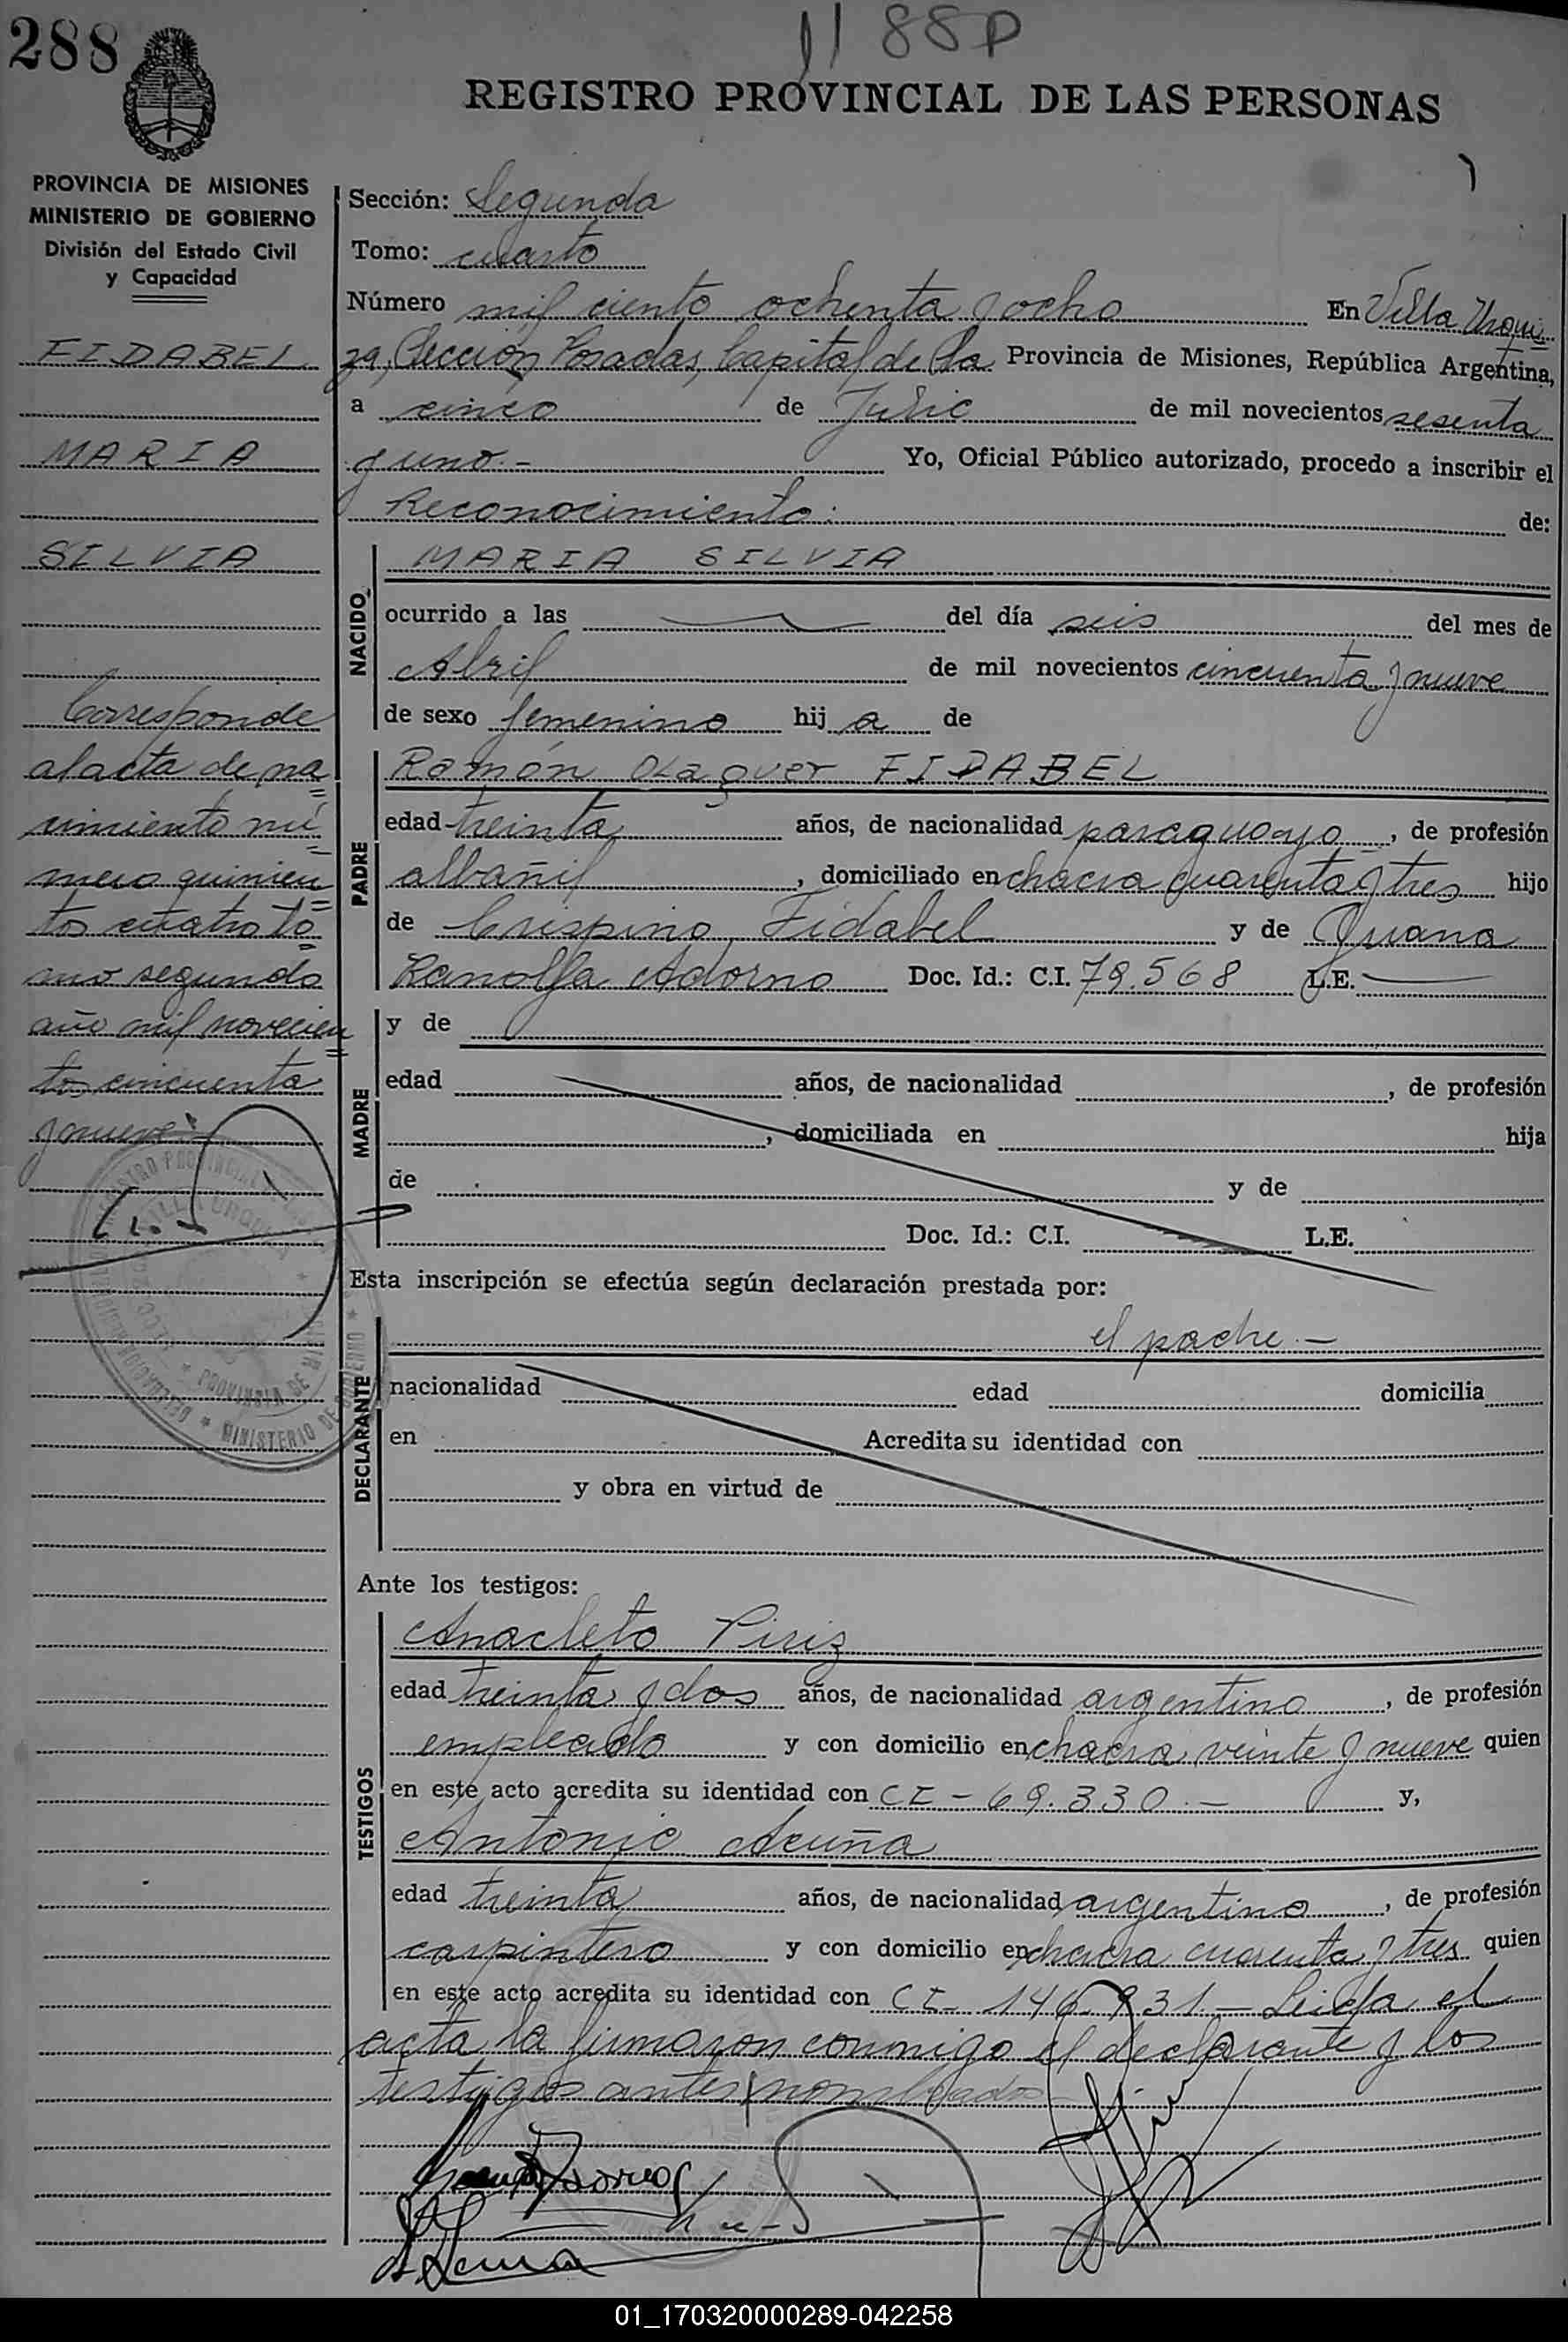 288
1188P
REGISTRO PROVINCIAL DE LAS PERSONAS
PROVINCIA DE MISIONES
MINISTERIO DE GOBIERNO
División del Estado Civil
y Capacidad
FIDABEL
MARIA
SILVIA
Corresponde
al acta de na=
cimiento nú=
mero quinien=
tos cuatro to=
mo segundo
año mil novecien=
tos cincuenta
y nueve.
Sección: Segunda
Tomo: cuarto
Número mil ciento ochenta y ocho En Villa Urqui=
za, Sección Posadas, Capital de la Provincia de Misiones, República Argentina,
a cinco de Julio de mil novecientos sesenta
y uno.- Yo, Oficial Público autorizado, procedo a inscribir el
Reconocimiento: de:
NACIDO
MARIA SILVIA
ocurrido a las del día seis del mes de
Abril de mil novecientos cincuenta y nueve
de sexo femenino hij a de
PADRE
Ramón Olaguer FIDABEL
edad treinta años, de nacionalidad paraguayo, de profesión
albañil, domiciliado en chacra cuarenta y tres hijo
de Crispino Fidabel y de Juana
Ranolfa Adorno Doc. Id.: C.I. 79.568 L.E.
MADRE
y de
edad años, de nacionalidad , de profesión
, domiciliada en hija
de y de
Doc. Id.: C.I. L.E.
Esta inscripción se efectúa según declaración prestada por:
DECLARANTE
el padre.-
nacionalidad edad domicilia
en Acredita su identidad con
y obra en virtud de
Ante los testigos:
TESTIGOS
Anacleto Piriz
edad treinta y dos años, de nacionalidad argentino, de profesión
empleado y con domicilio en chacra veinte y nueve quien
en este acto acredita su identidad con CI - 69.330.- y,
Antonio Acuña
edad treinta años, de nacionalidad argentino, de profesión
carpintero y con domicilio en chacra cuarenta y tres quien
en este acto acredita su identidad con CI- 146.931.- Leida el
acta la firmaron conmigo el declarante y los
testigos antes nombrados
01_170320000289-042258